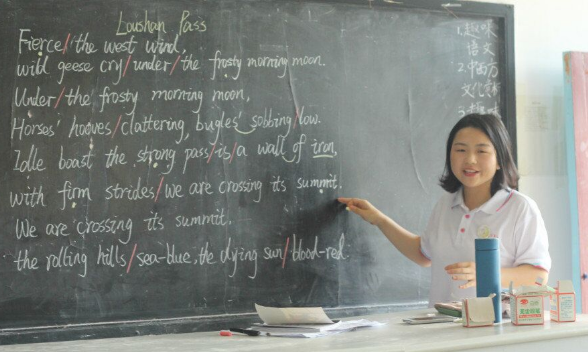 Loushan Pass
Fierce/the west wind,
wild geese cry/under/the frosty morning moon.
Under/the frosty morning moon,
Horses' hooves/clattering, bugles sobbing/low.
Idle boast the strong pass/is/a wall of iron,
with firm strides/we are crossing its summit.
We are crossing its summit.
the rolling hills/sea-blue, the dying sun/blood-red.
1.趣味
语文
2.中西方
文化赏析